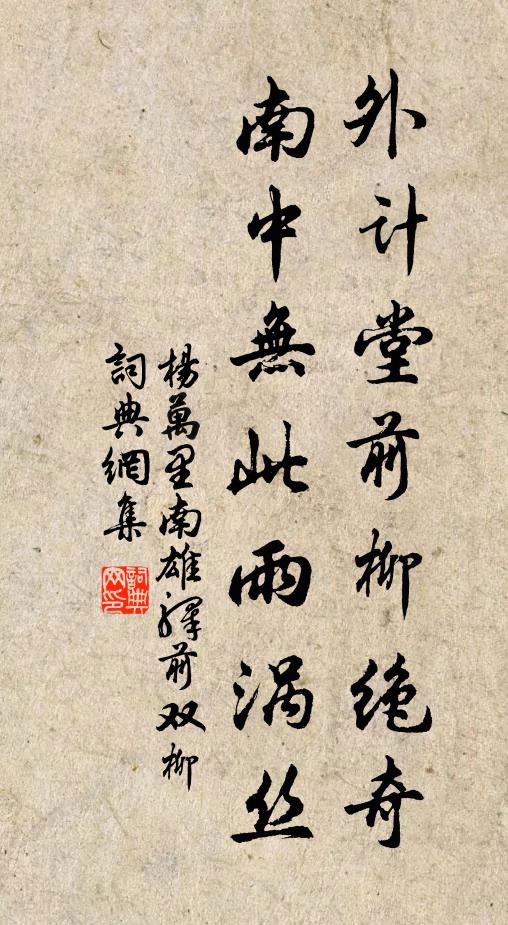 外計堂前柳絕奇
南中無此兩渦丝
楊萬里南雄驛前双柳
詞典網集
詞典网印